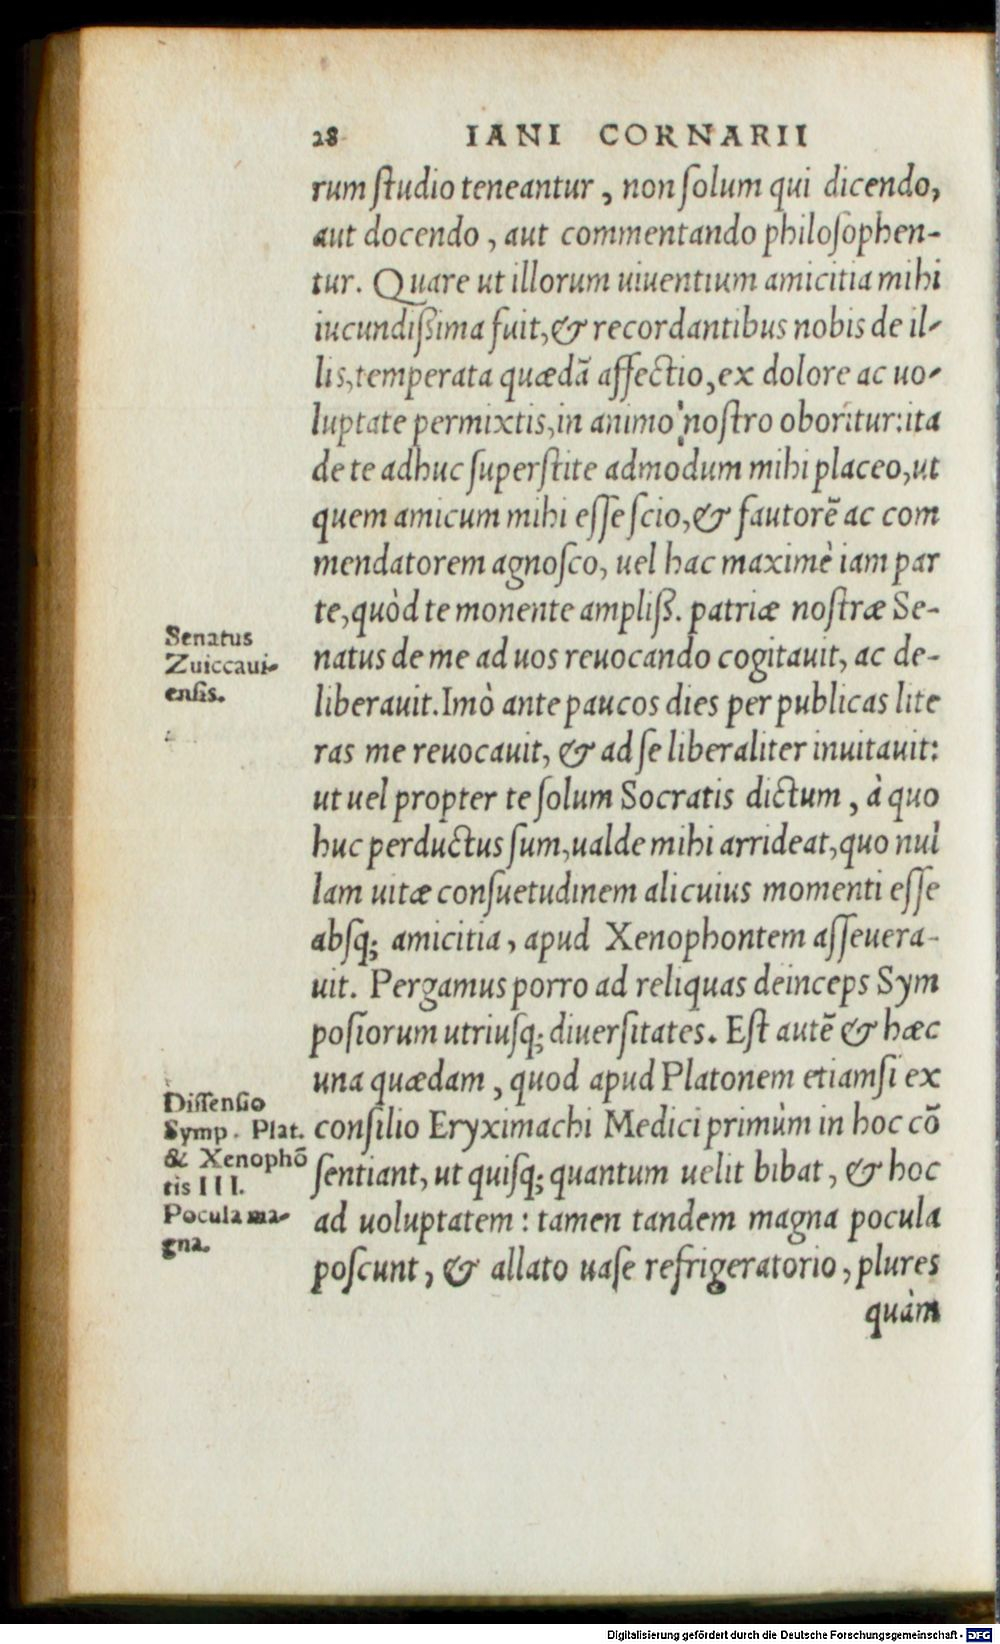 28 IANI CORNARII
rum ſtudio teneantur, non ſolum qui dicendo,
aut docendo, aut commentando philoſophen-
tur. Quare ut illorum uiuentium amicitia mihi
iucundißima fuit, & recordantibus nobis de il-
lis, temperata quædã affectio, ex dolore ac uo-
luptate permixtis, in animo noſtro oboritur: ita
de te adhuc ſuperſtite admodum mihi placeo, ut
quem amicum mihi eſſe ſcio, & fautorẽ ac com
mendatorem agnoſco, uel hac maximè iam par
te, quòd te monente ampliß. patriæ noſtræ Se-
Senatus
Zuiccaui-
enſis.
natus de me ad uos reuocando cogitauit, ac de-
liberauit. Imò ante paucos dies per publicas lite
ras me reuocauit, & ad ſe liberaliter inuitauit:
ut uel propter te ſolum Socratis dictum, à quo
huc perductus ſum, ualde mihi arrideat, quo nul
lam uitæ conſuetudinem alicuius momenti eſſe
abſq; amicitia, apud Xenophontem aſſeuera-
uit. Pergamus porro ad reliquas deinceps Sym
poſiorum utriuſq; diuerſitates. Eſt autẽ & hæc
una quædam, quod apud Platonem etiamſi ex
Diſſenſio
Symp. Plat.
& Xenophõ
tis III.
Pocula ma-
gna.
conſilio Eryximachi Medici primùm in hoc cõ
ſentiant, ut quiſq; quantum uelit bibat, & hoc
ad uoluptatem: tamen tandem magna pocula
poſcunt, & allato uaſe refrigeratorio, plures
quàm
Digitalisierung gefördert durch die Deutsche Forschungsgemeinschaft - DFG